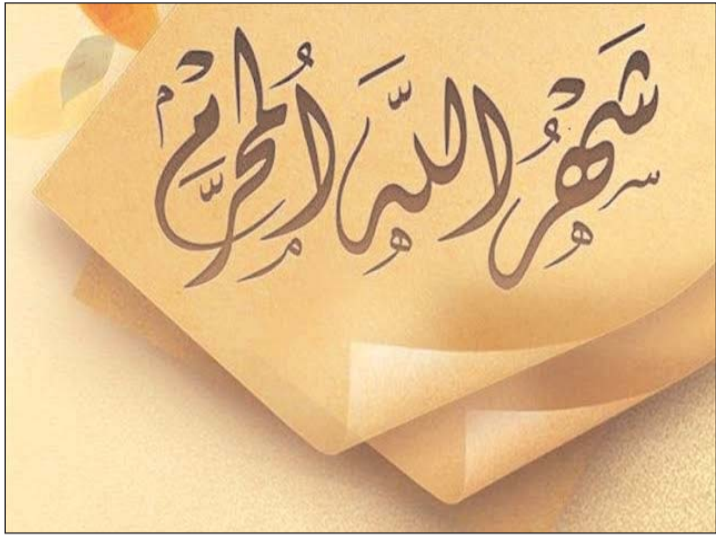 شَهْرُ اللَّه المُحَرَّم